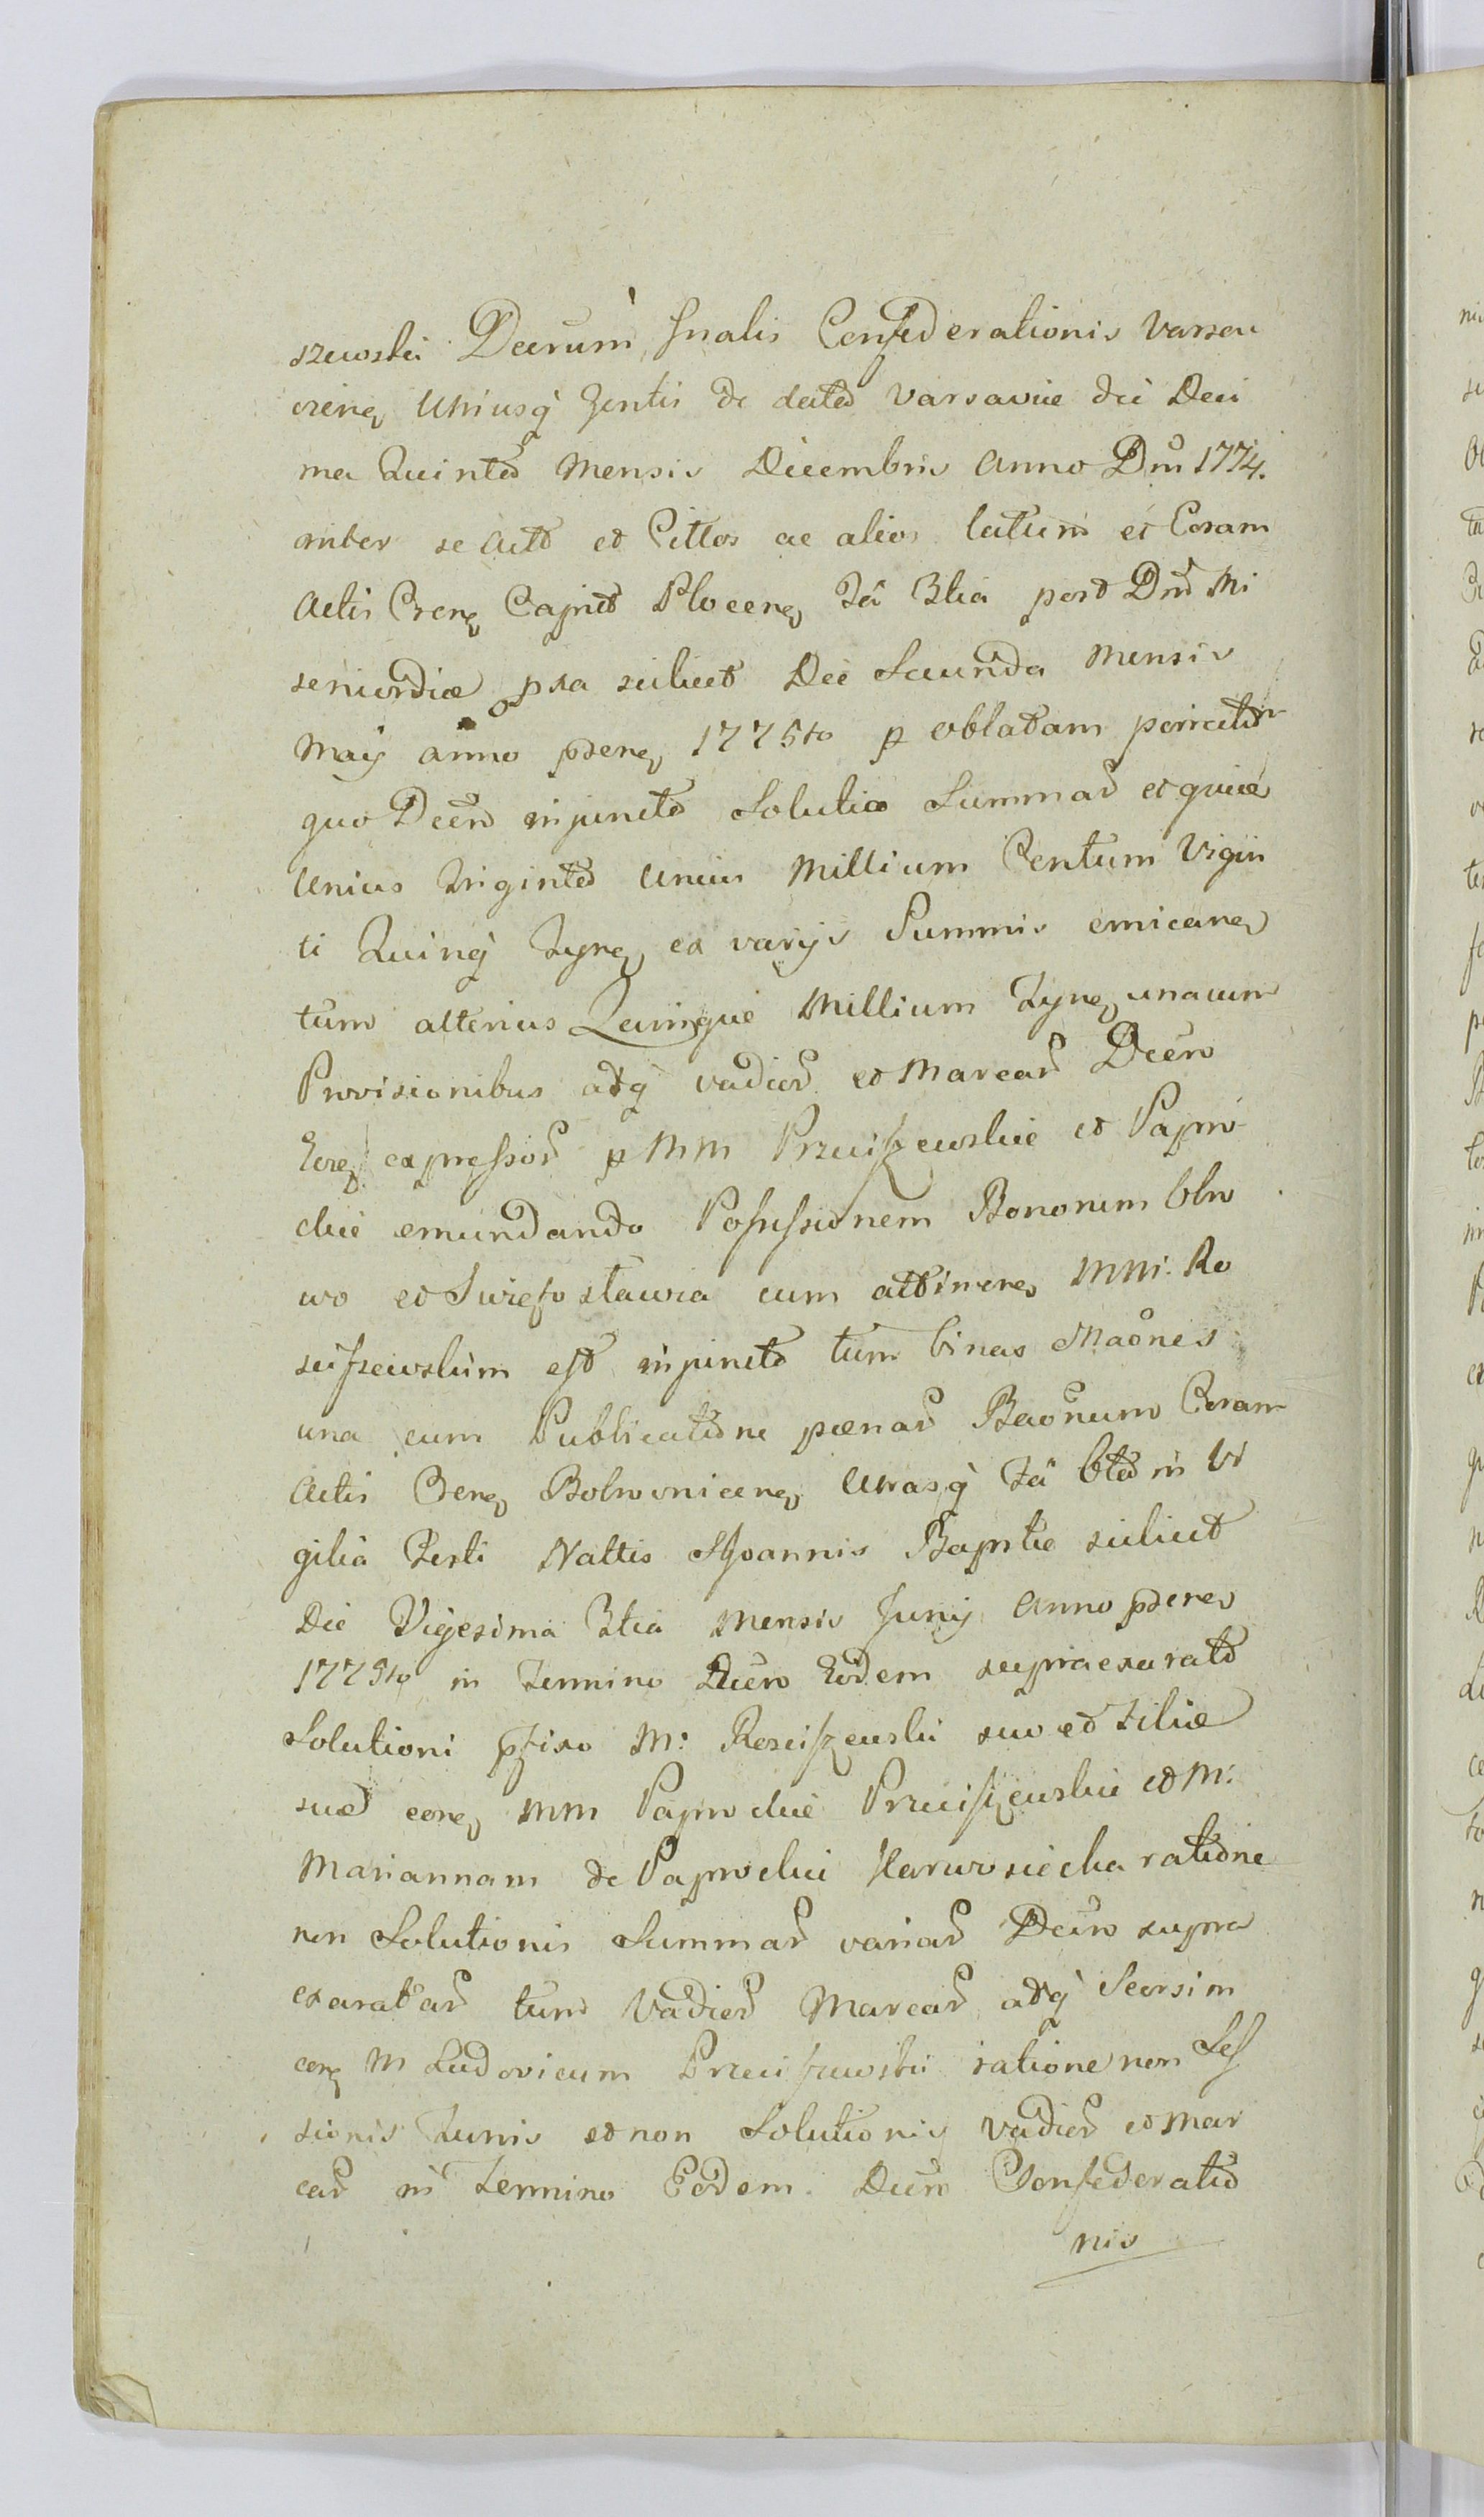 szewski Decrum Gnalis Confederationis Varsau
viene Utriusq̀ Gentis de dató Varsaviæ die Deci
ma Quintó Mensis Decembris Anno Dni 1774.
inter se Actó et Cittos ac alios latum et Coram
Actis Crene Caprieó Plocene Fâ 3tia post Dnó Mi
sericordiæ pxa scilicet Die Secunda Mensis
Maij anno psene 1775to p oblatam poriectó
quo Decró injunctó Solutio Summaŕ
Unius Triginta Unius Millium Centum Vigin
ti Quinq̀ Fyne ex varijs Summis emicane
tum alterius Quinque Millium Fyne unacum
Provisionibus atq̀ vadioŕ et Marcaŕ Decro
Eore expressoŕ p MM Przeciszewskie et Papro
ckie emundando Possessionem Bonorum Obro
wo et cum attinene MM. Ro
sciszewskim est injunctó tum binas Maones
una cum Publicatione pænaŕ Baonum Coram
Actis Crene Bobrownicene Utrasq̀ Fâ 6tó in Vi
gilia Festi Nattis S Joannis Baptte scilicet
Die Vigesima 3tia Mensis Junij Anno psene
1775to in Termino Decro Eodem supraexarató
Solutioni pfixo M: Rosciszewski suo et Filiæ
suæ cone MM Paprockie Przeciszewskie et M:
Mariannam de Paprockie Karwosiecka ratione
non Solutionis Summaŕ variaŕ Decro supra
exarataŕ tum Vadioŕ Marcaŕ atq̀ Seorsim
cone M Ludovicum Przeciszewski ratione non Ces
sionis Juris et non Solutionis vadioŕ et Mar
caŕ in Termino Eodem Decro Confederatio
nis